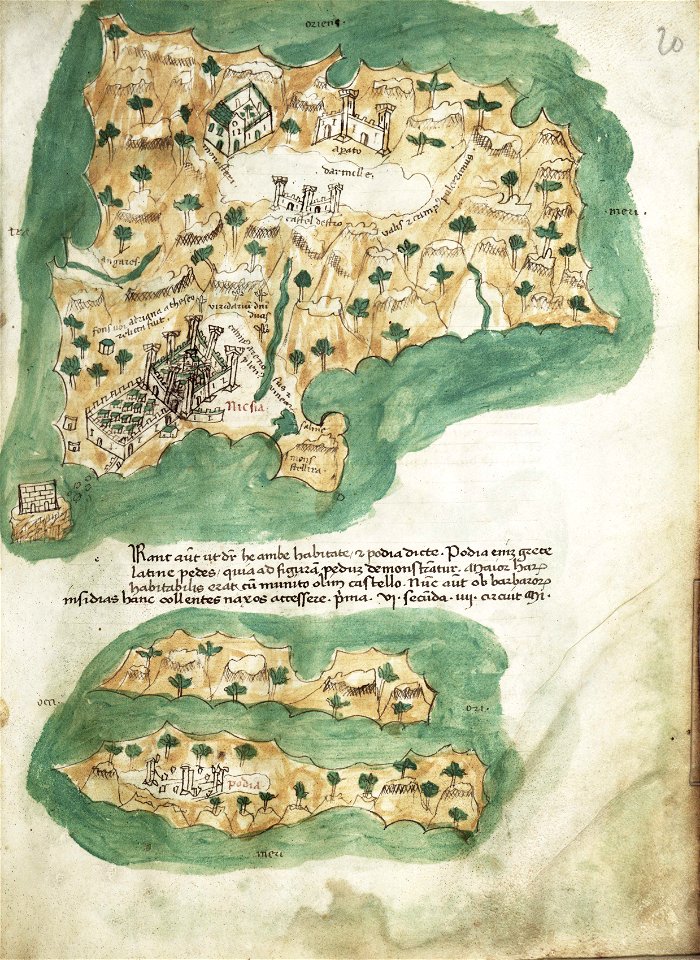 20
oriens
apato
darmille
castel destro
valis z campi
meri
angares
fons ubi
viridariu dni
ducis
Nicsia
saline
mons
stellira
Erant aut ut dr he ambe habitate z podia dicte. Podia eniz grece
latine pedes, quia ad figuram peduz demonstratur. Maior har
habitabilis erat cu munito olim castello. Nuc aut ob barbaror
insidias hanc collentes naxos accessere. pma. vi. secuda. iiii. circuit mi.
occi
ori
podia
meri